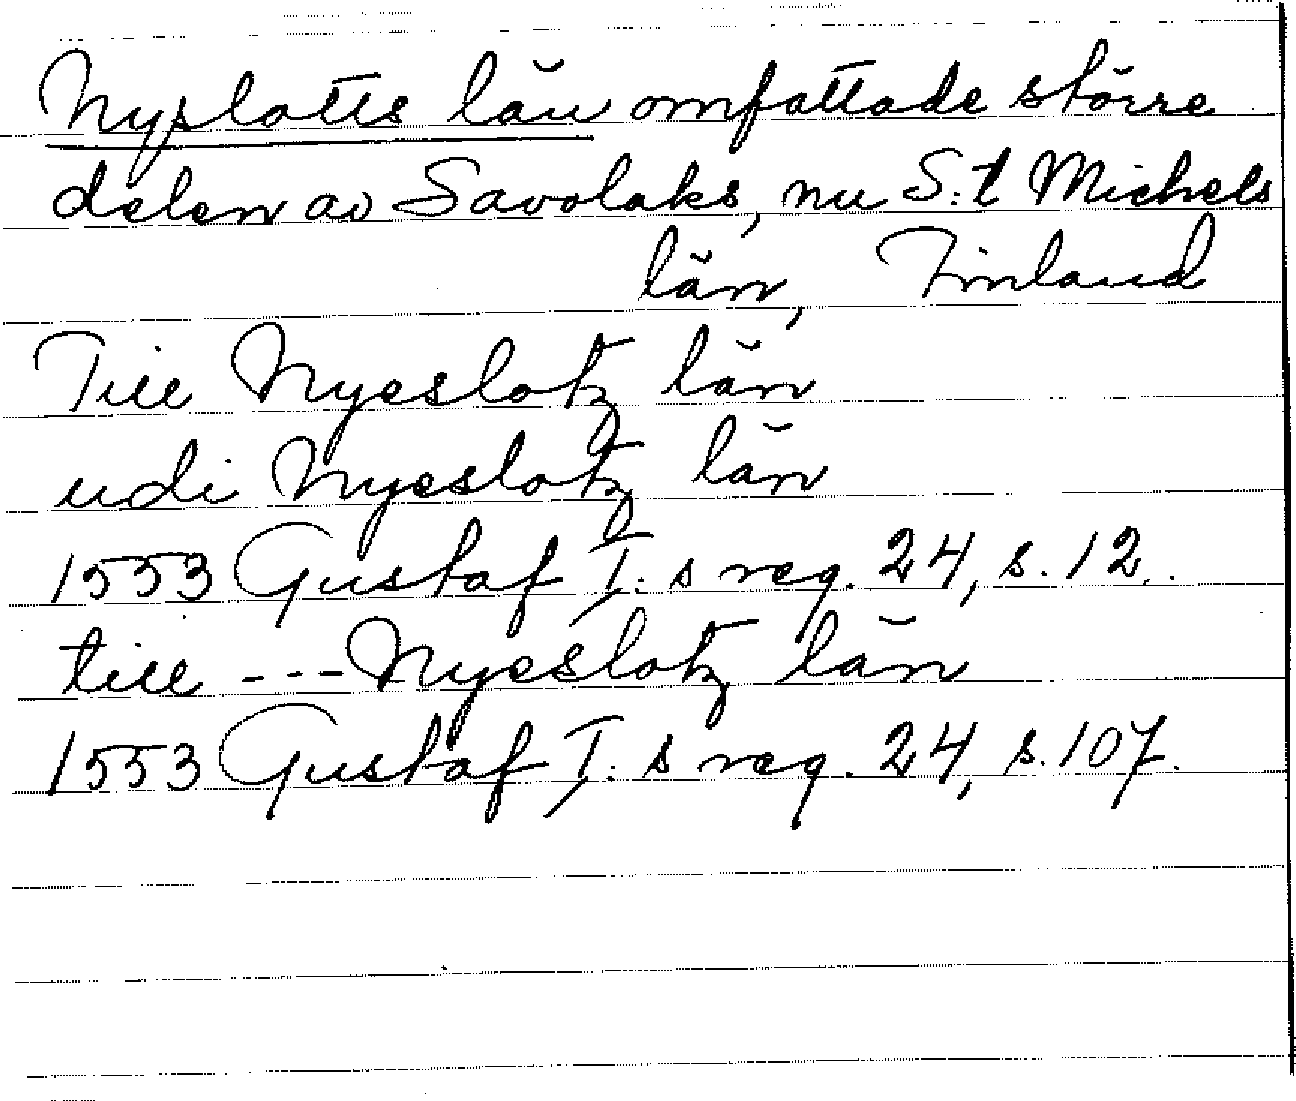 Nyslotts län omfattade större
delen av Savolaks, nu S:t Michels
län, Finland
Till Nyeslotz län
udi Nyeslotz län
1553 Gustaf I:s reg. 24, s. 12.
till --- Nyeslotz län
1553 Gustaf I:s reg. 24, s. 107.